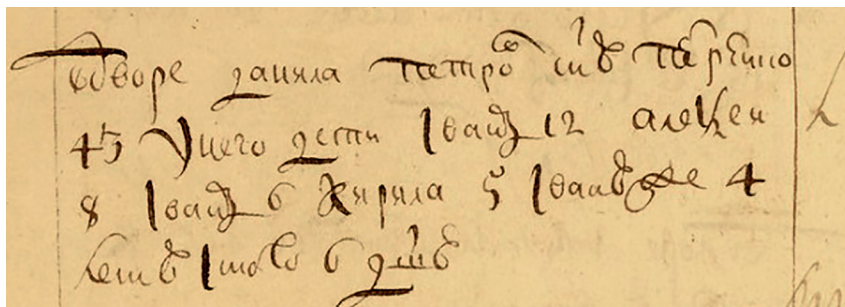 Во дворе Данила Петров снъ Перѣино
45 У него дети Іванъ 12 алеѯеи
8 Іванъ 6 Кирила 5 Іванъ же 4
летъ Итого 6 дшъ